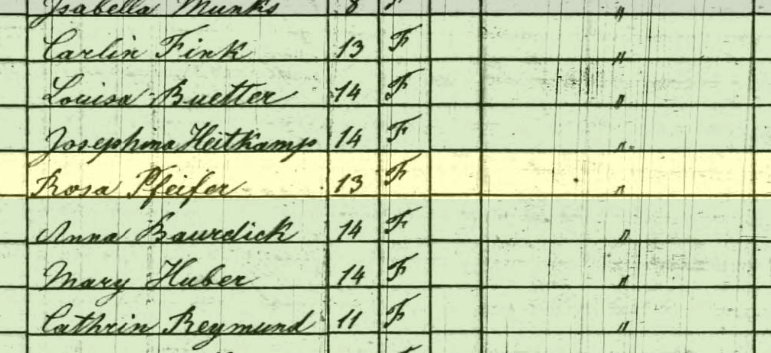 Isabella Munks 8 F "
Carlin Fink 13 F "
Louisa Buetter 14 F "
Josephina Heitkamp 14 F "
Rosa Pfeifer 13 F "
Anna Baurdick 14 F "
Mary Huber 14 F "
Cathrin Reymund 11 F "
F